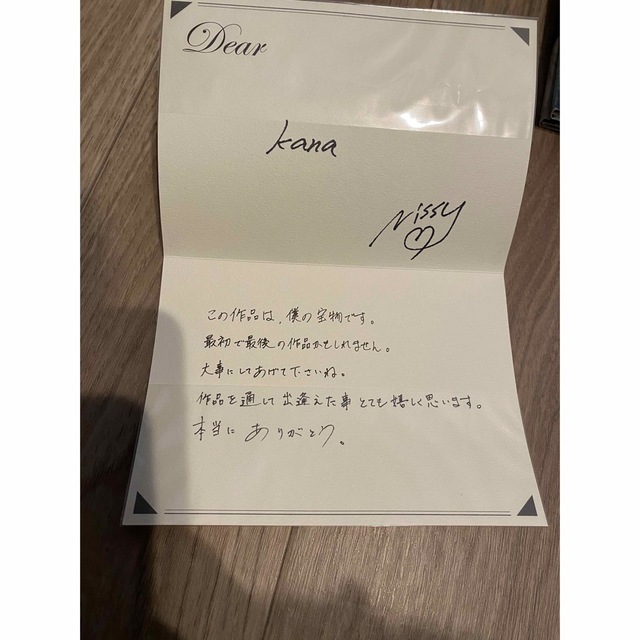 Dear
kana
Nissy
この作品は、僕の宝物です。
最初で最後の作品かもしれません。
大事にしてあげて下さいね。
作品を通して出逢えた事とても嬉しく思います。
本当にありがとう。